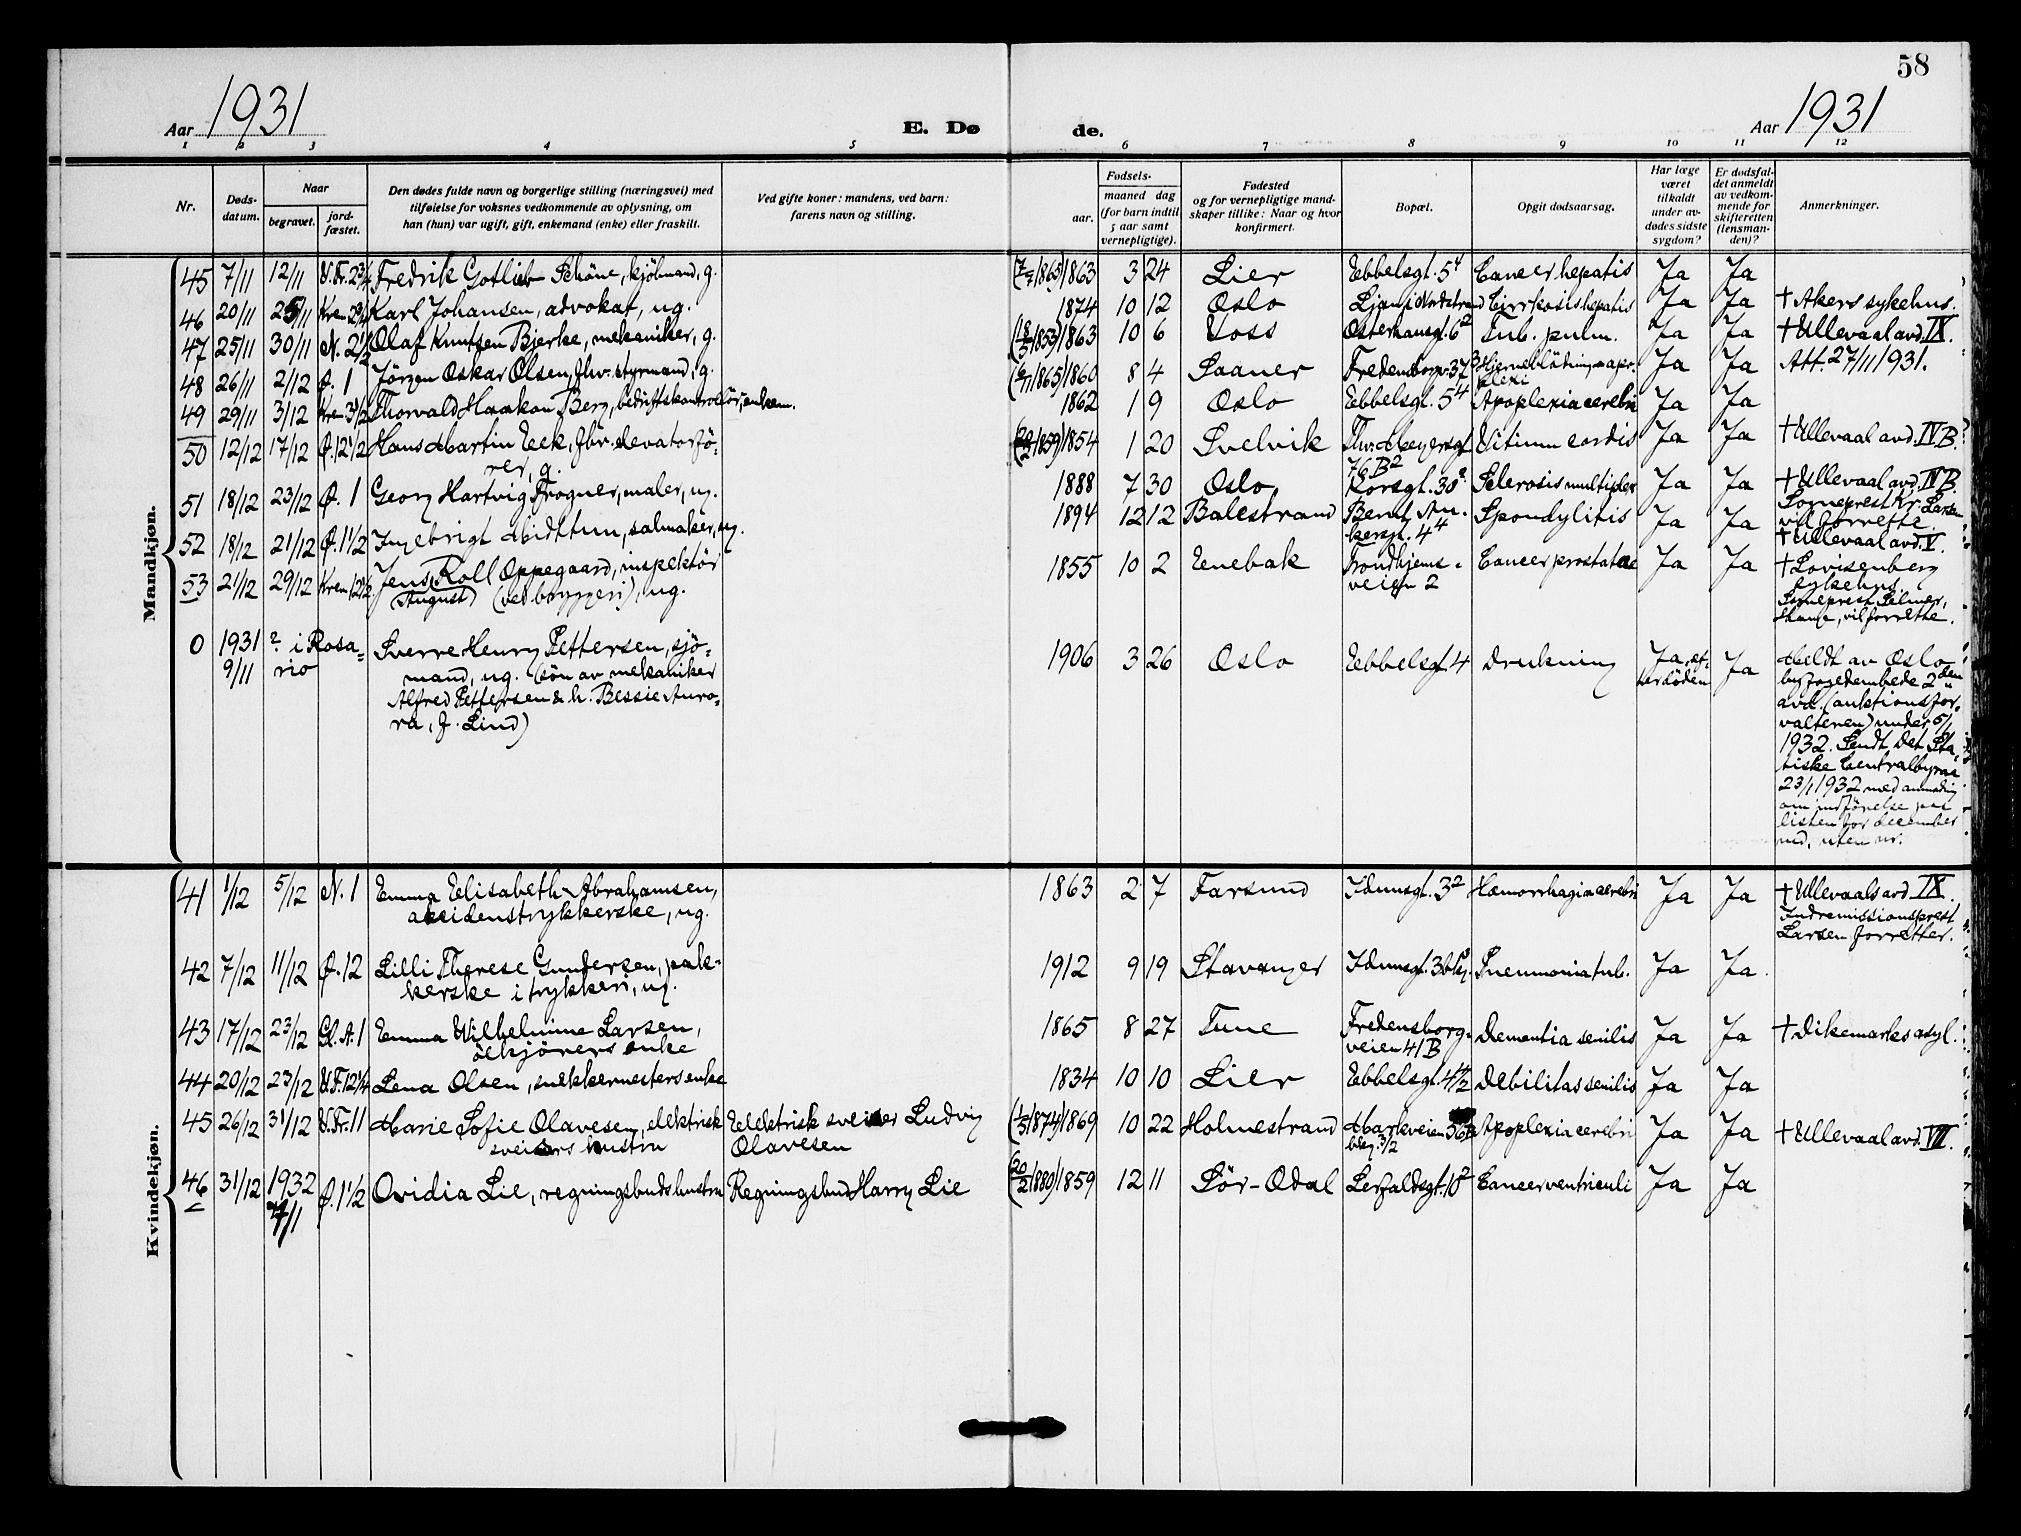 58
Aar 1931 E. Dø de. Aar 1931
1 2 3 4 5 6 7 8 9 10 11 12
Nr. Døds-datum. Naar begravet. jord-fæstet. Den dødes fulde navn og borgerlige stilling (næringsvei) med tilføielse for voksnes vedkommende av oplysning, om han (hun) var ugift, gift, enkemand (enke) eller fraskilt. Ved gifte koner: mandens, ved barn: farens navn og stilling. Fødsels- aar. maaned dag (for barn indtil 5 aar samt vernepligtige). Fødested og for vernepligtige mandskaper tillike: Naar og hvor konfirmert. Bopæl. Opgit dødsaarsag. Har læge været tilkaldt under avdødes sidste sygdom? Er dødsfaldet anmeldt av vedkommende for skifteretten (lensmanden)? Anmerkninger.
Mandkjøn.
45 7/11 12/11 V.Fr. Fredrik Gotlieb Schöne, kjöbmand, g. 1863 3 24 Lier Ebbelsgt. 5⁴ Cancer hepatis Ja Ja
46 20/11 25/11 Krem. Karl Johansen, advokat, ug. 1874 10 12 Oslo Ljan i Nordstrand Cirrhosis hepatis Ja Ja † Akers sykehus.
47 25/11 30/11 N. 2 1/2 Olaf Knutsen Bjerke, mekaniker, g. 1863 10 6 Voss Osterhausgt. 6² Tub. pulm. Ja Ja † Ullevaal avd. IX.
48 26/11 2/12 Ø. 1 Jörgen Oskar Olsen, fhv. styrmand, g. 1860 8 4 Saaner Fredensborgv. 37³ Hjerneblödning apoplexi Ja Ja Att. 27/11 1931.
49 29/11 3/12 Krem. Thorvald Haakon Berg, bedriftskontrollör, enkem. 1862 1 9 Oslo Ebbelsgt. 5⁴ Apoplexia cerebri Ja Ja
50 12/12 17/12 Ø. 12 1/2 Hans Martin Eek, fhv. elevatorfö- 1854 1 20 Svelvik Thv. Meyersgt Vitium cordis Ja Ja † Ullevaal avd. IV B.
rer, g. 76 B²
51 18/12 23/12 Ø. 1 Georg Hartvig Frogner, maler, ug. 1888 7 30 Oslo Korsgt. 30² Sclerosis multiplex Ja Ja † Ullevaal avd. IV B.
Sogneprest Kr. Larsen
52 18/12 21/12 Ø. 1 1/2 Ingebrigt Midttun, salmaker, ug. 1894 12 12 Balestrand Bernt An- Spondylitis Ja Ja vil forrette.
kersgt. 4⁴ † Ullevaal avd. V.
53 21/12 29/12 Krem. 12 1/2 Jens Roll Oppegaard, inspektör 1855 10 2 Enebak Trondhjems- Cancer prostatae Ja Ja † Lovisenberg
(August) (ved bryggeri), ug. veien 2 sykehus.
Sogneprest Selmer,
Skauge, vil forrette.
0 1931 ? i Rosa- Sverre Henry Pettersen, sjö- 1906 3 26 Oslo Ebbelsgt. 4 Drukning Ja, et- Ja Meldt av Oslo
9/11 rio mand, ug. (sön av mekaniker terdöden byfogedembede 2den
Alfred Pettersen & h. Bessie Auro- avd. (auktionsfor-
ra, f. Lind) valteren) under 5/1
1932. Sendt Det Sta-
tiske Centralbyraa
23/1 1932 med anmodning
om indförelse paa
listen for december
md, uten nr.
Kvindekjøn.
41 1/12 5/12 N. 1 Emma Elisabeth Abrahamsen, 1863 2 7 Farsund Idunsgt. 3² Hæmorrhagia cerebri Ja Ja † Ullevaals avd. IX.
akcidenstrykkerske, ug. Indremissionsprest
Larsen forretter.
42 7/12 11/12 Ø. 12 Lilli Therese Gundersen, pak- 1912 9 19 Stavanger Idunsgt. Pneumonia tub. Ja Ja.
kerske i trykkeri, ug.
43 17/12 23/12 Gl. A. 1 Emma Wilhelmine Larsen, 1865 8 27 Tune Fredensborg- Dementia senilis Ja Ja † Dikemarks asyl.
ölkjörers enke veien 41 B
44 20/12 23/12 V.F. 12 1/4 Lena Olsen, snekkermesters enke 1834 10 10 Lier Ebbelsgt. Debilitas senilis Ja Ja
45 26/12 31/12 V.Fr. 11 Marie Sofie Olavesen, elektrisk Elektrisk sveiser Ludvig (1/5 1874) 1869 10 22 Holmestrand Markveien Apoplexia cerebri Ja Ja † Ullevaal avd. VII.
sveisers hustru Olavesen
46 31/12 1932 Ø. 1 1/2 Ovidia Lie, regningsbuds hustru Regningsbud Harry Lie (20/2 1880) 1859 12 11 Sör-Odal Lerfaldsgt. 10² Cancer ventriculi Ja Ja
4/1